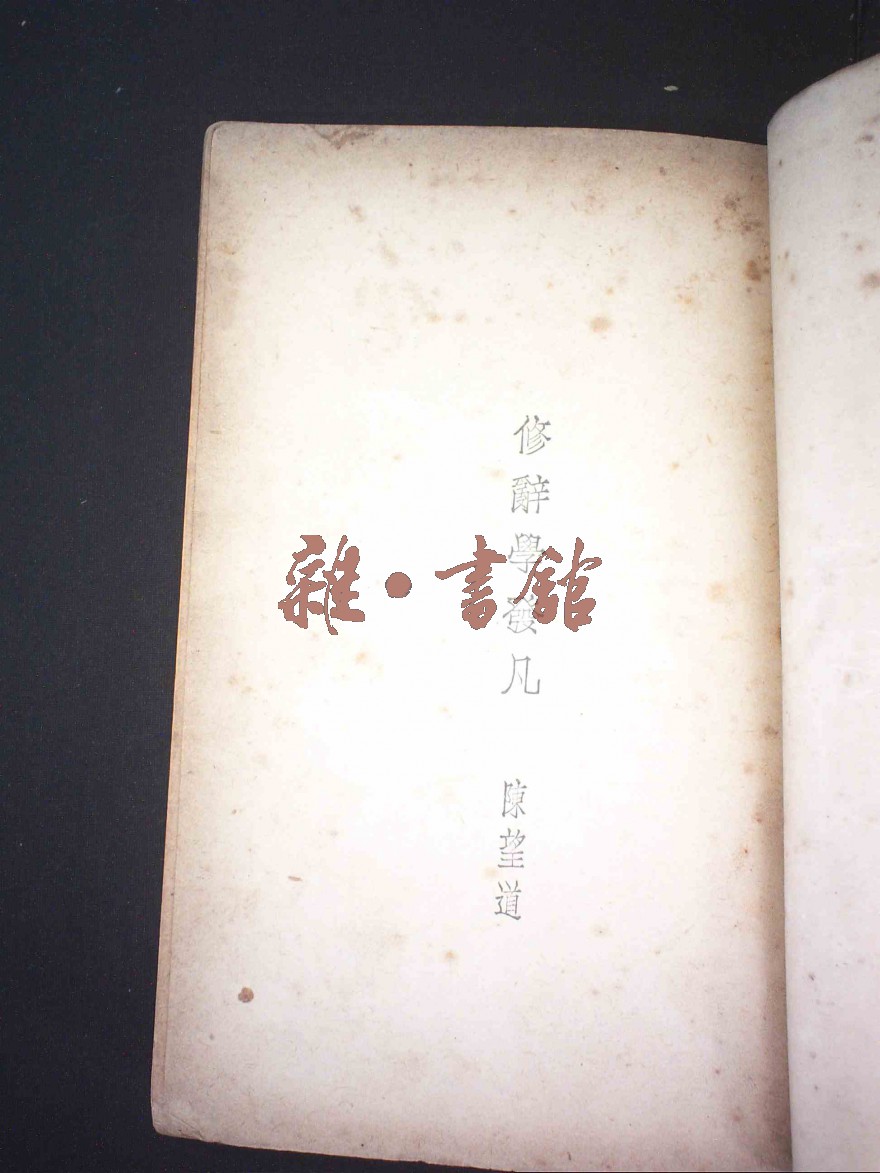 修辭學發凡
陳望道
雜·書館